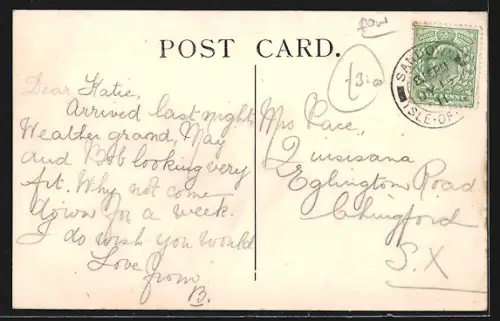 POST CARD.
Dear Katie,
Arrived last night
Weather grand, May
and Bob looking very
fit. Why not come
down for a week.
I do wish you would
Love from
B.
Mrs Race,
Quisisana
Eglington Road
Chingford
S.X
SANDO
ISLE·OF·